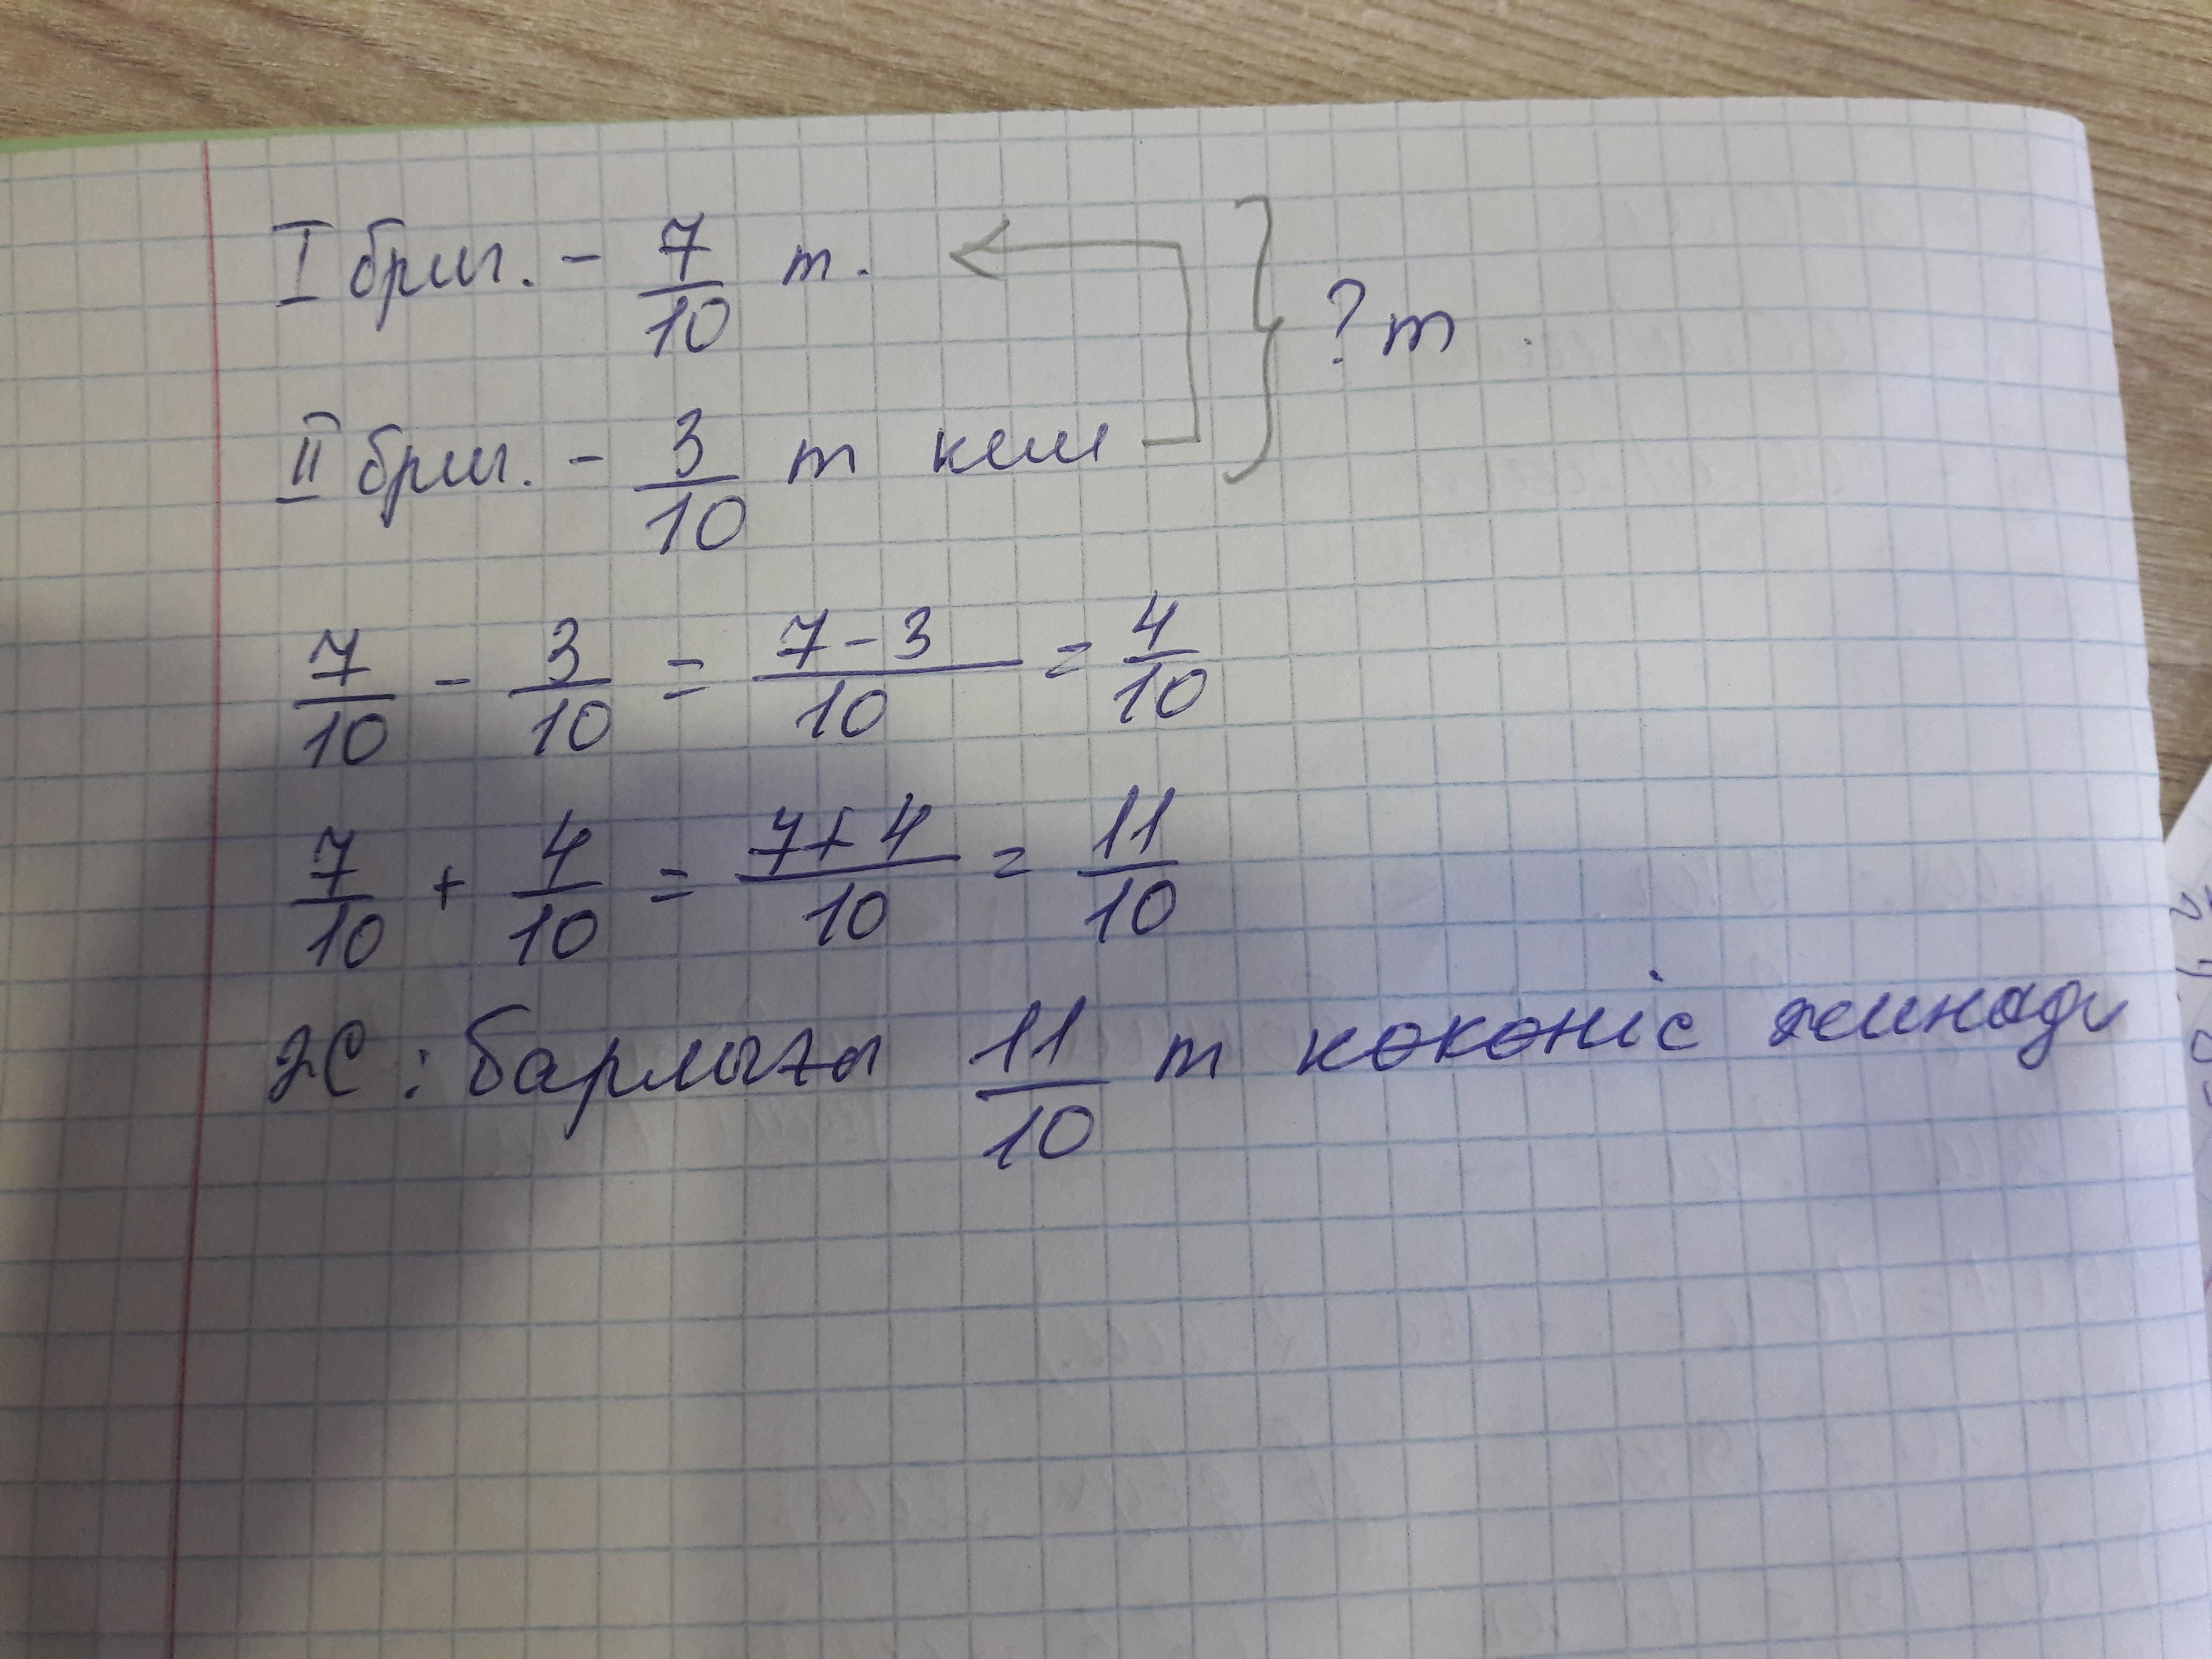 I бриг. - 7/10 т.
II бриг. - 3/10 т кем
? т.
7/10 - 3/10 = 7-3/10 = 4/10
7/10 + 4/10 = 7+4/10 = 11/10
Ж: барлығы 11/10 т көкөніс жинады